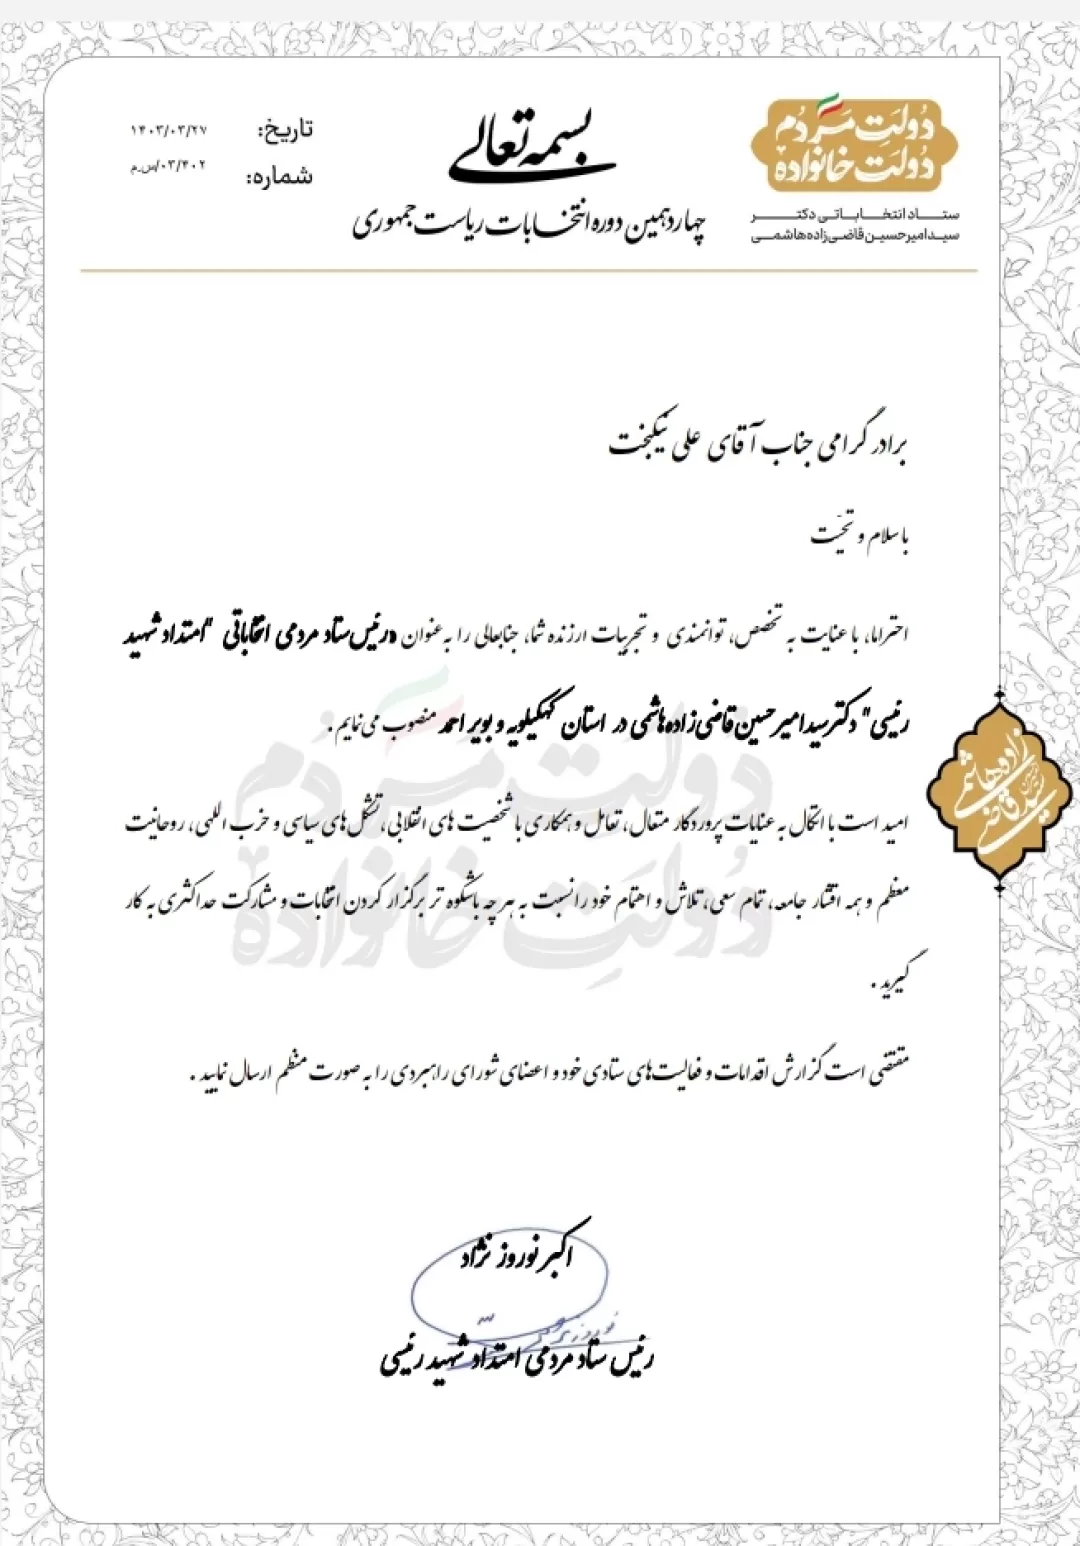 دولت مردم
دولت خانواده
ستاد انتخاباتی دکتر
سیدامیرحسین قاضی‌زاده‌هاشمی
بسمه تعالی
چهاردهمین دوره انتخابات ریاست جمهوری
تاریخ: ۱۴۰۳/۰۳/۲۷
شماره: ۰۳/۴۰۲/س.م
برادر گرامی جناب آقای علی نیکبخت
با سلام و تحیّت
احتراما، با عنایت به تخصص، توانمندی و تجربیات ارزنده شما، جنابعالی را به عنوان «رئیس ستاد مردمی انتخاباتی "امتداد شهید
رئیسی" دکتر سید امیر حسین قاضی زاده هاشمی در استان کهگیلویه و بویر احمد منصوب می نمایم.
امید است با اتکال به عنایات پروردگار متعال، تعامل و همکاری با شخصیت های انقلابی، تشکل های سیاسی و حزب اللهی، روحانیت
معظم و همه اقشار جامعه، تمام سعی، تلاش و اهتمام خود را نسبت به هر چه باشکوه تر برگزار کردن انتخابات و مشارکت حداکثری به کار
گیرید.
مقتضی است گزارش اقدامات و فعالیت‌های ستادی خود و اعضای شورای راهبردی را به صورت منظم ارسال نمایید.
دولت مردم
دولت خانواده
سید قاضی زاده هاشمی
اکبر نوروز نژاد
رئیس ستاد مردمی امتداد شهید رئیسی